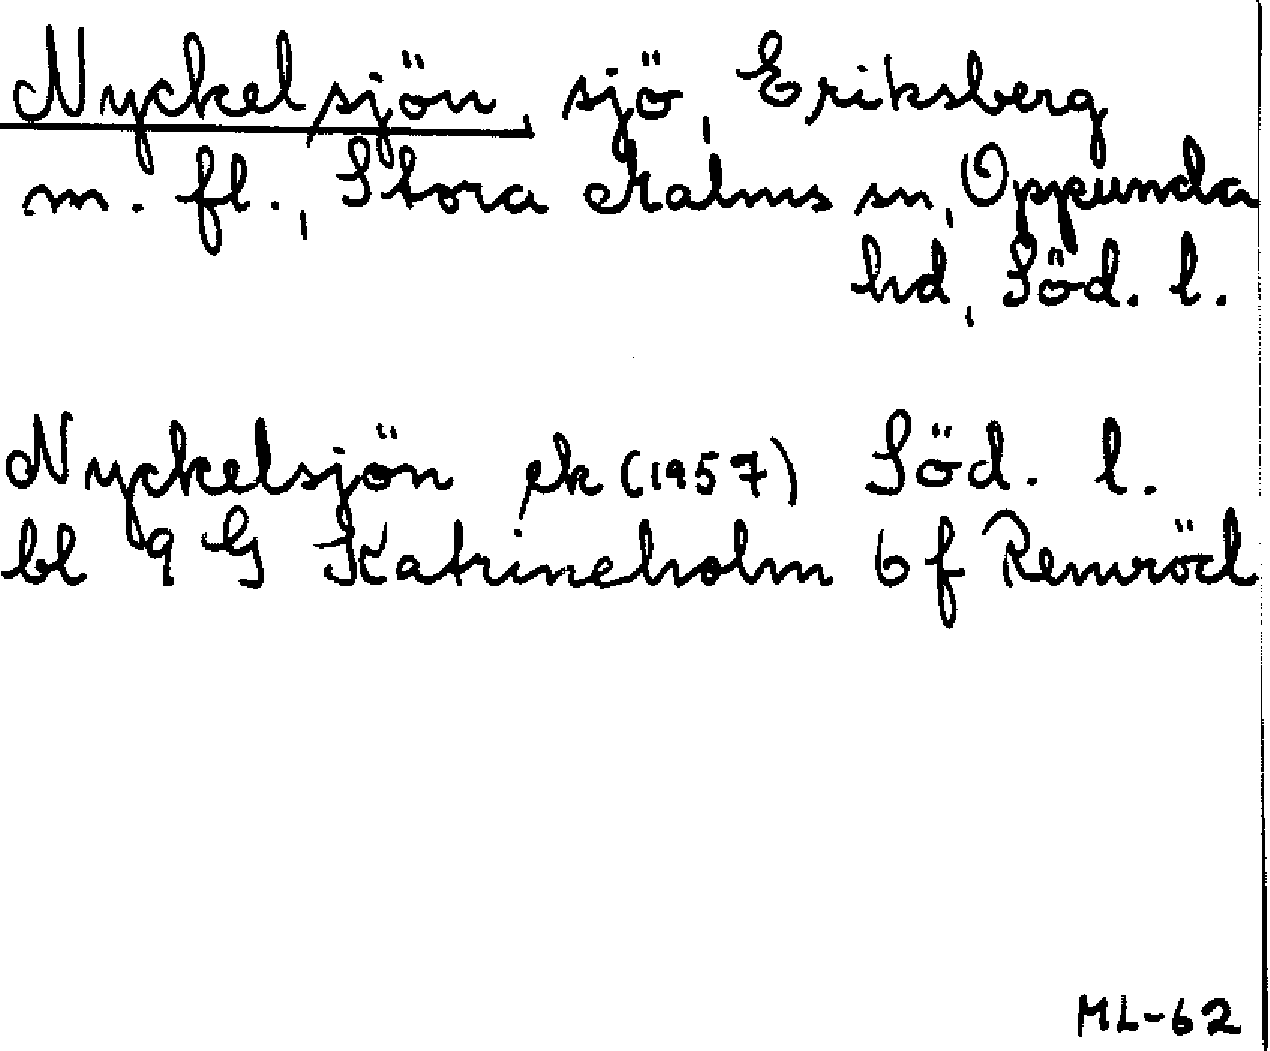 Nyckelsjön, sjö, Eriksberg
m. fl., Stora Malms sn, Oppunda
hd, Söd. l.
Nyckelsjön ek (1957) Söd. l.
bl 9 G Katrineholm 6 f Remröd
ML-62